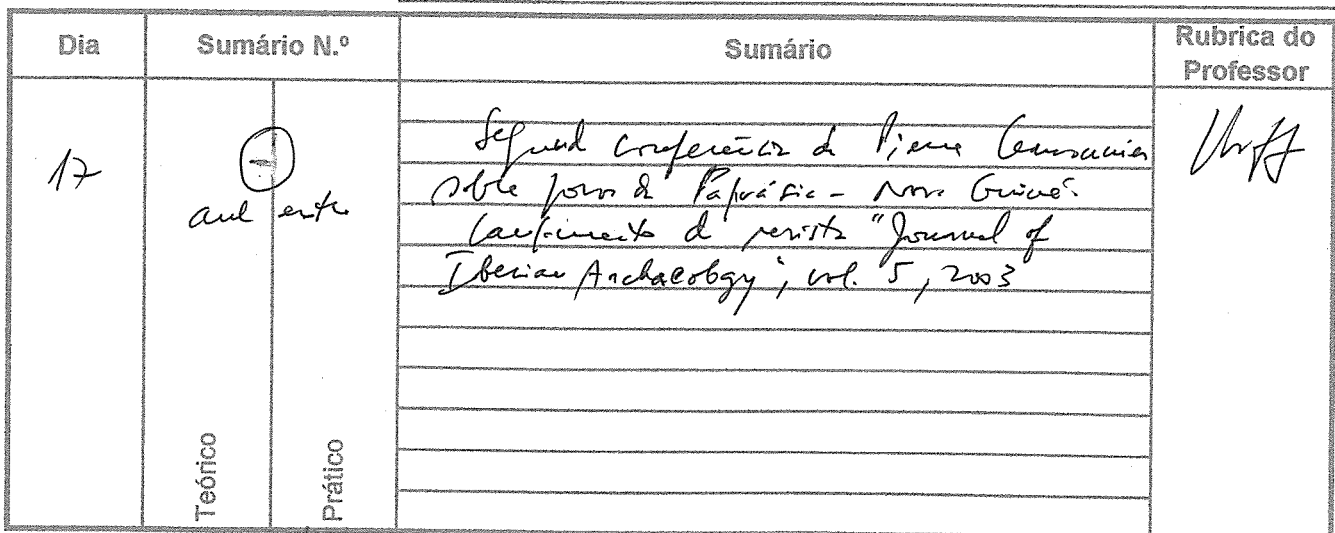 Dia Sumário N.º Sumário Rubrica do Professor
17
Segund conferência de Pierre
sobre povos da Papuásia - Nova Guiné.
Lançamento da revista "Journal of
Iberian Archaeology", vol. 5, 2003
Teórico
Prático